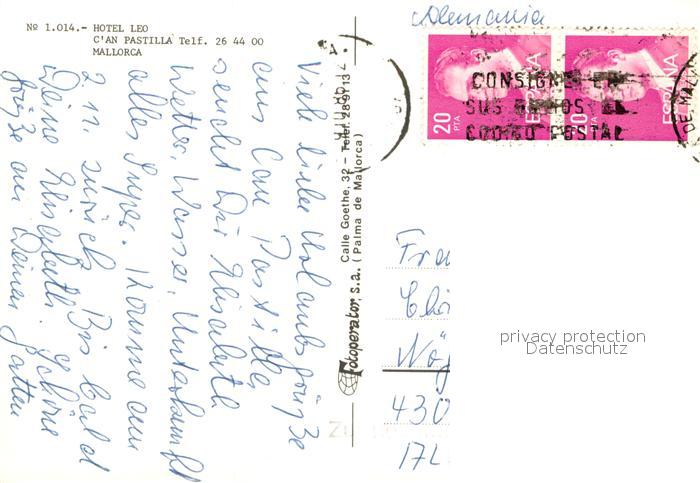 Nº 1.014.- HOTEL LEO
C'AN PASTILLA Telf. 26 44 00
MALLORCA
Alemania
20
PTA
ESPAÑA
20
PTA
ESPAÑA
CONSIGNE EN
SUS ENVIOS EL
CODIGO POSTAL
DE MA
Viele liebe Urlaubsgrüße
aus Can Pastilla
sendet Dir Elisabeth
Wetter, Wasser, Unterkunft
alles super. Komme am
2.11. zurück. Bis bald
Deine Elisabeth. Schöne
Grüße an Deinen Gatten
Fotoperator, s.a.
Calle Goethe, 32 – Telef. 289713
(Palma de Mallorca)
Fra
430
privacy protection
Datenschutz